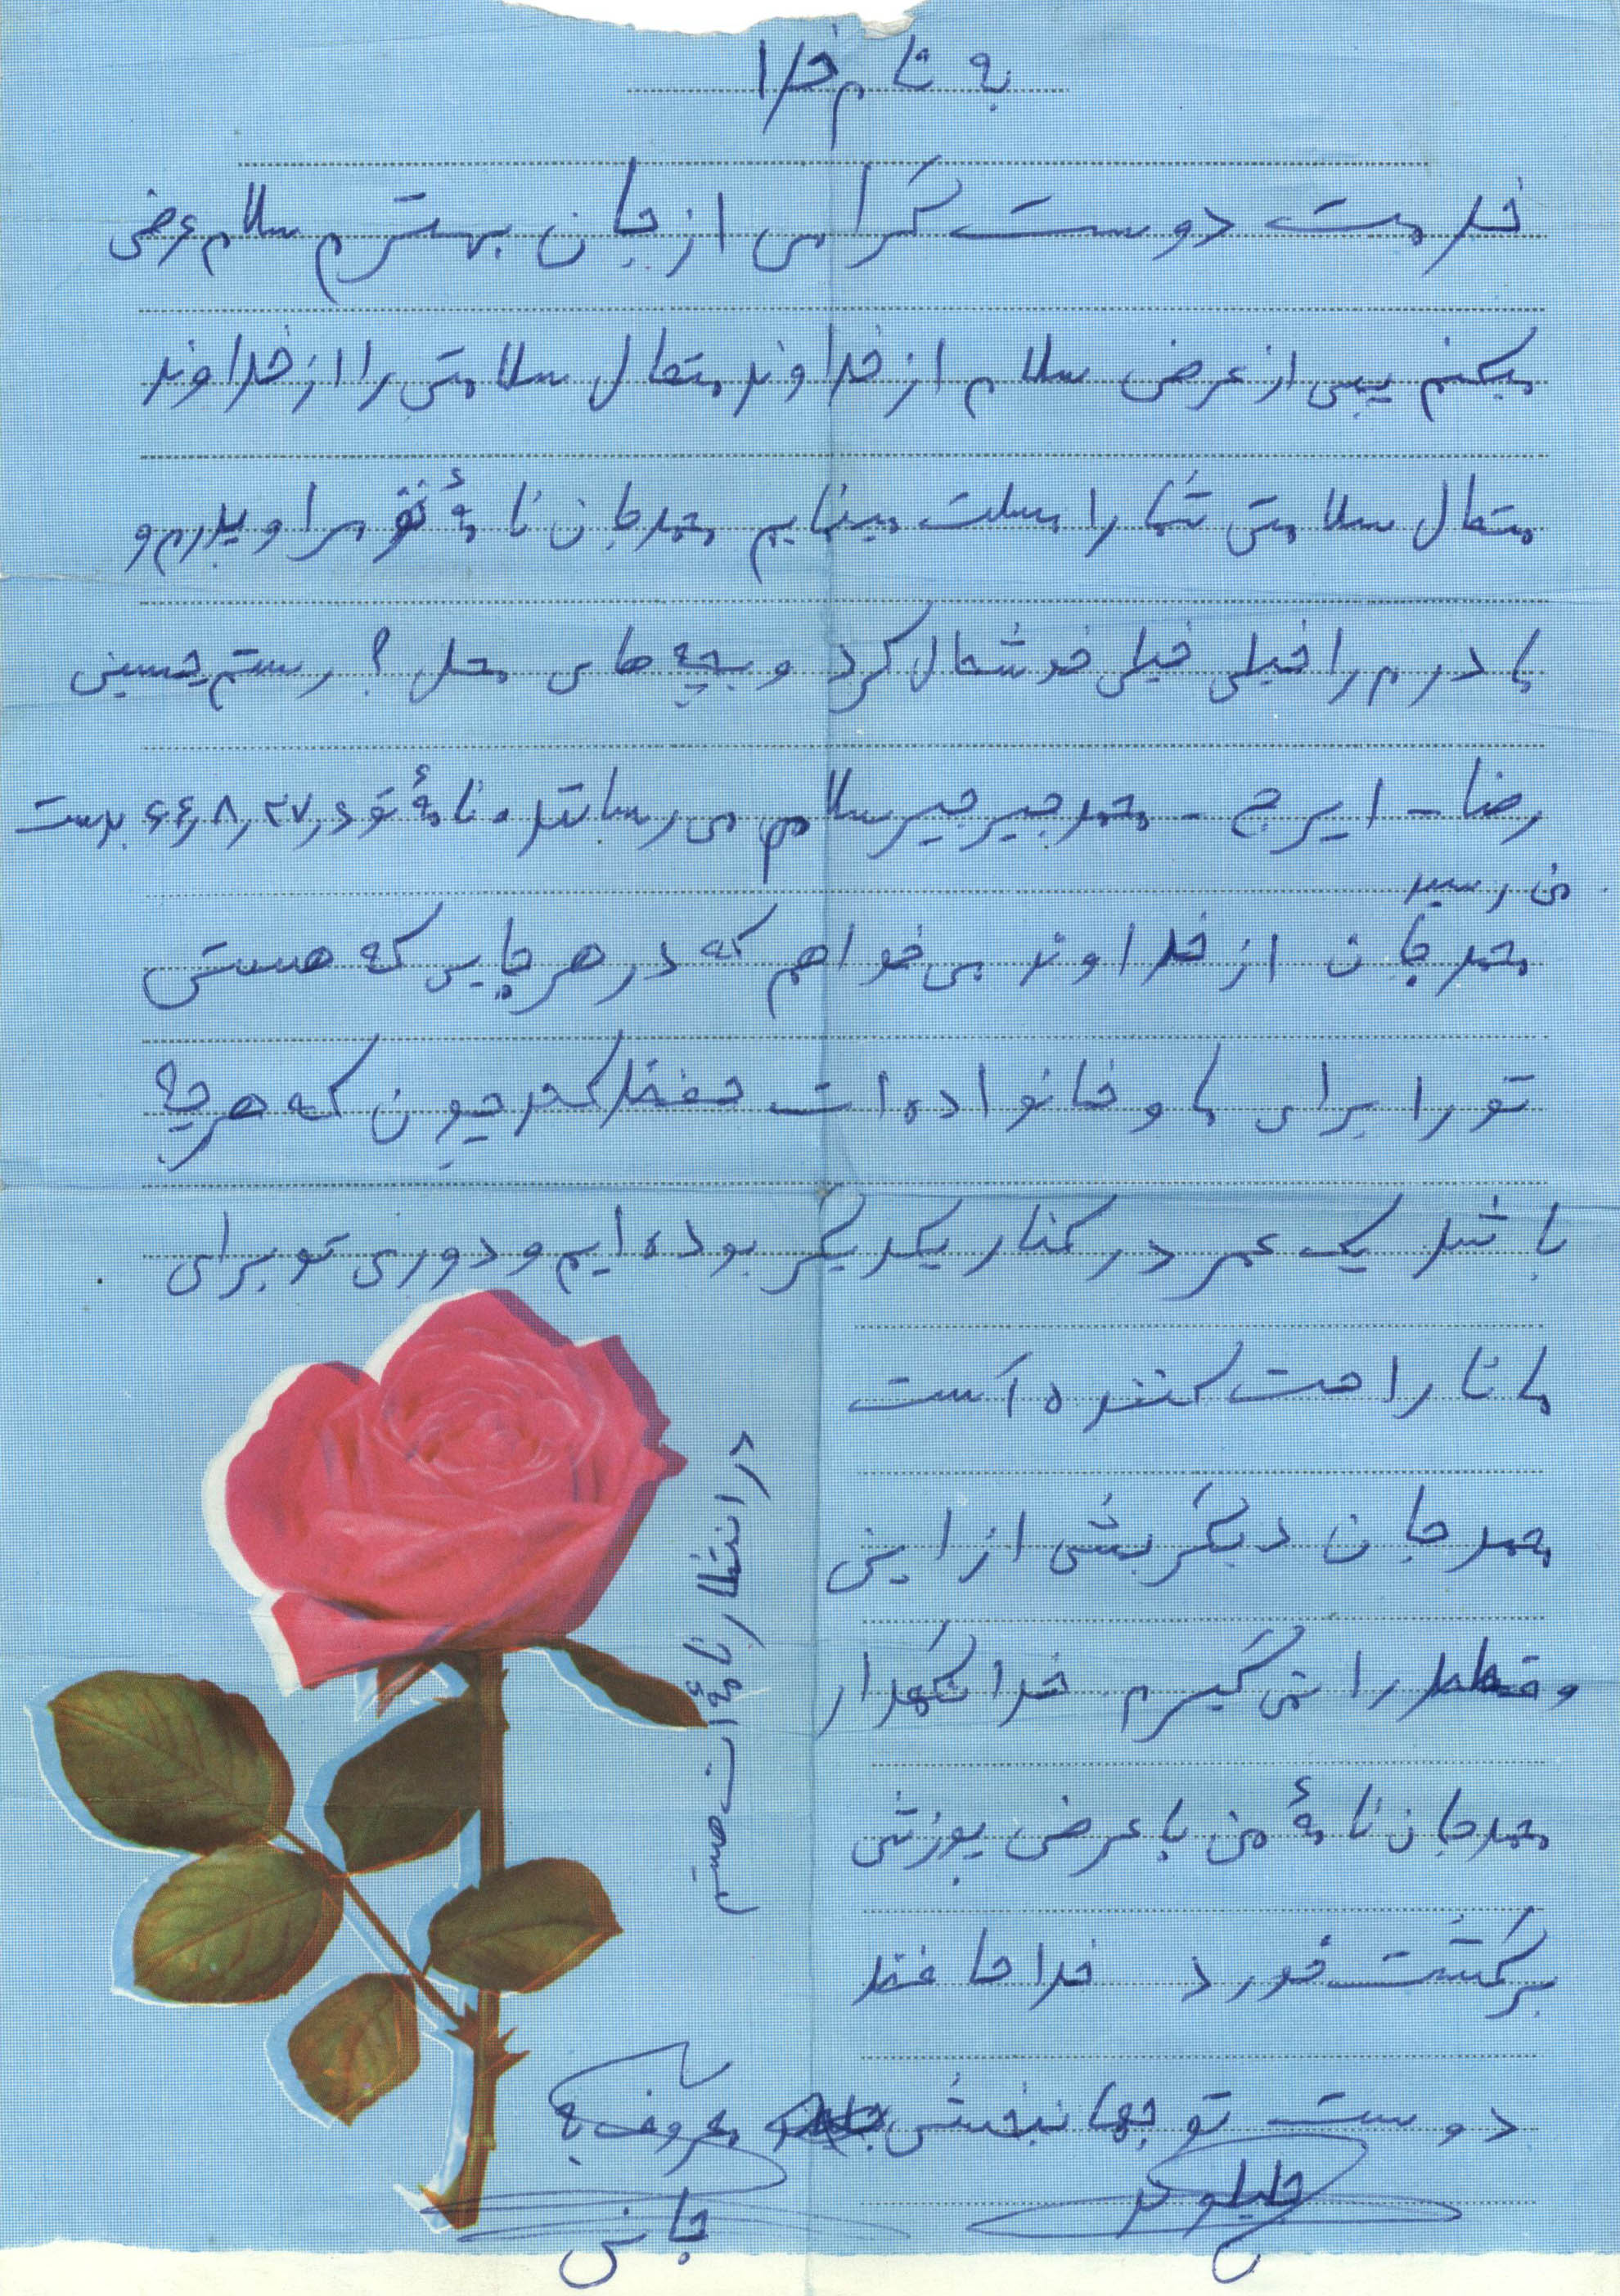 به نام خدا
خدمت دوست گرامی از جان بهترم سلام عرض
میکنم پس از عرض سلام از خداوند متعال سلامتی را از خداوند
متعال سلامتی شما را مسلت مینمایم محمد جان نامهٔ تو مرا و پدرم و
مادرم را خیلی خیلی خوشحال کرد و بچه های محل ؟ رستم حسینی
رضا - ایرج - محمد جیرجیر سلام می رسانند. نامهٔ تو در ۶۶٫۸٫۲۷ بدست
من رسید
محمد جان از خداوند می خواهم که در هر جایی که هستی
تو را برای ما و خانواده ات حفظ کند چون که هر چه
باشد یک عمر در کنار یکدیگر بوده ایم و دوری تو برای
ما ناراحت کننده است
محمد جان دیگر بش از این
وقتت را نمی گیرم خدانگهدار
محمد جان نامهٔ من با عرض پوزش
برگشت خورد خداحافظ
دوست تو جهانبخش معروف به
جانی
در انتظار نامهٔ ات هستم